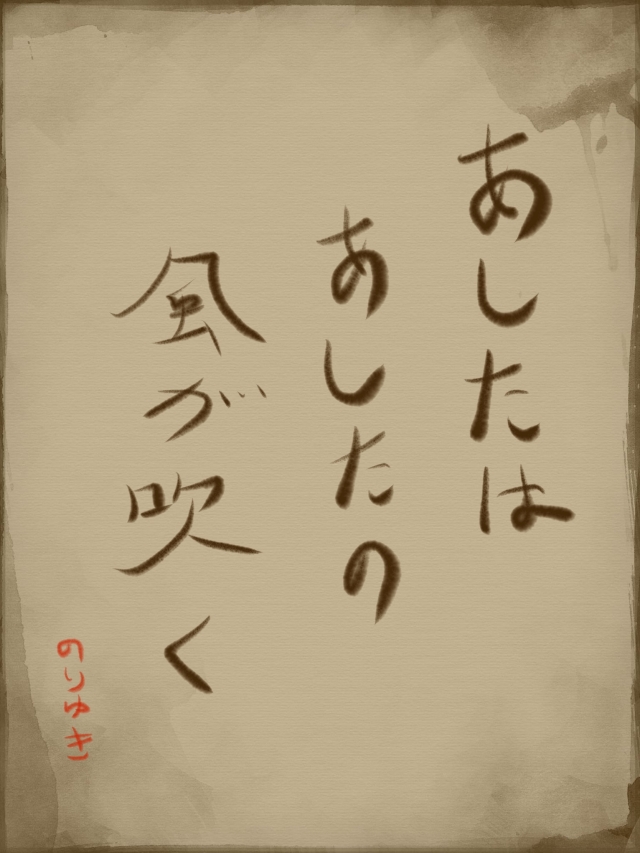 あしたは
あしたの
風が吹く
のりゆき